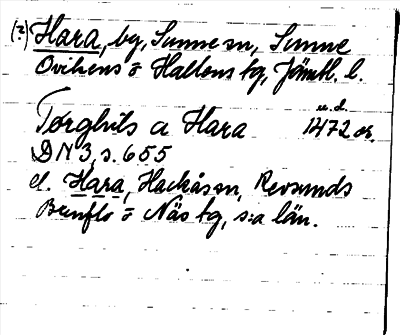 (?) Hara, by, Sunne sn, Sunne
Ovikens o Hallens tg, Jämtl. l.
u.d.
Torghils a Hara 1472 or.
DN 3, s. 655
el. Hara, Hackås sn, Revsunds
Brunflo o Näs tg, s:a län.